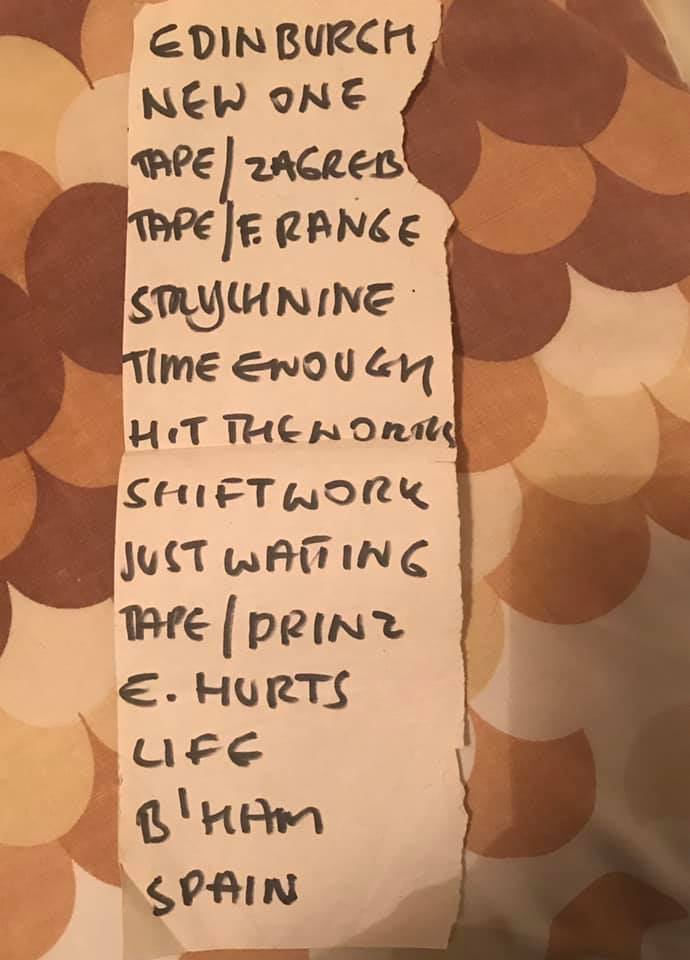 EDINBURGH
NEW ONE
TAPE/ZAGREB
TAPE/F. RANGE
STRYCHNINE
TIME ENOUGH
HIT THE NORTH
SHIFTWORK
JUST WAITING
TAPE/PRINZ
E. HURTS
LIFE
B'HAM
SPAIN